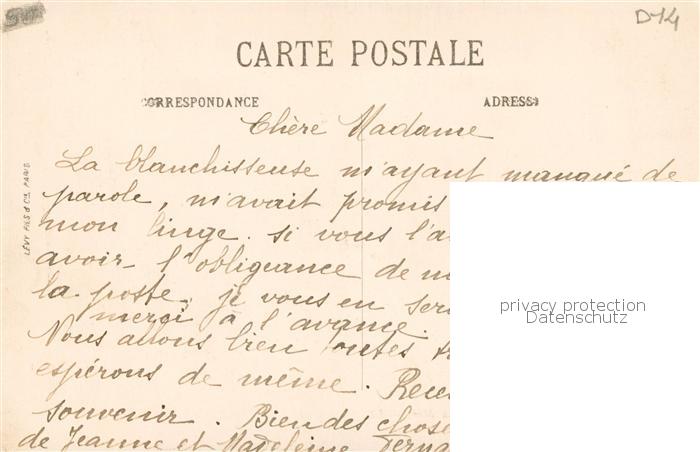 D14
CARTE POSTALE
CORRESPONDANCE
ADRESSE
Chère Madame
La blanchisseuse m'ayant manqué de
parole, m'avait promis
mon linge. si vous l'a
avoir l'obligeance de m
la poste, je vous en ser
merci à l'avance.
Nous allons bien toutes
espérons de même. Rece
souvenir. Bien des chose
de Jeanne et Madeleine
LÉVY FILS & Cie, PARIS
privacy protection
Datenschutz